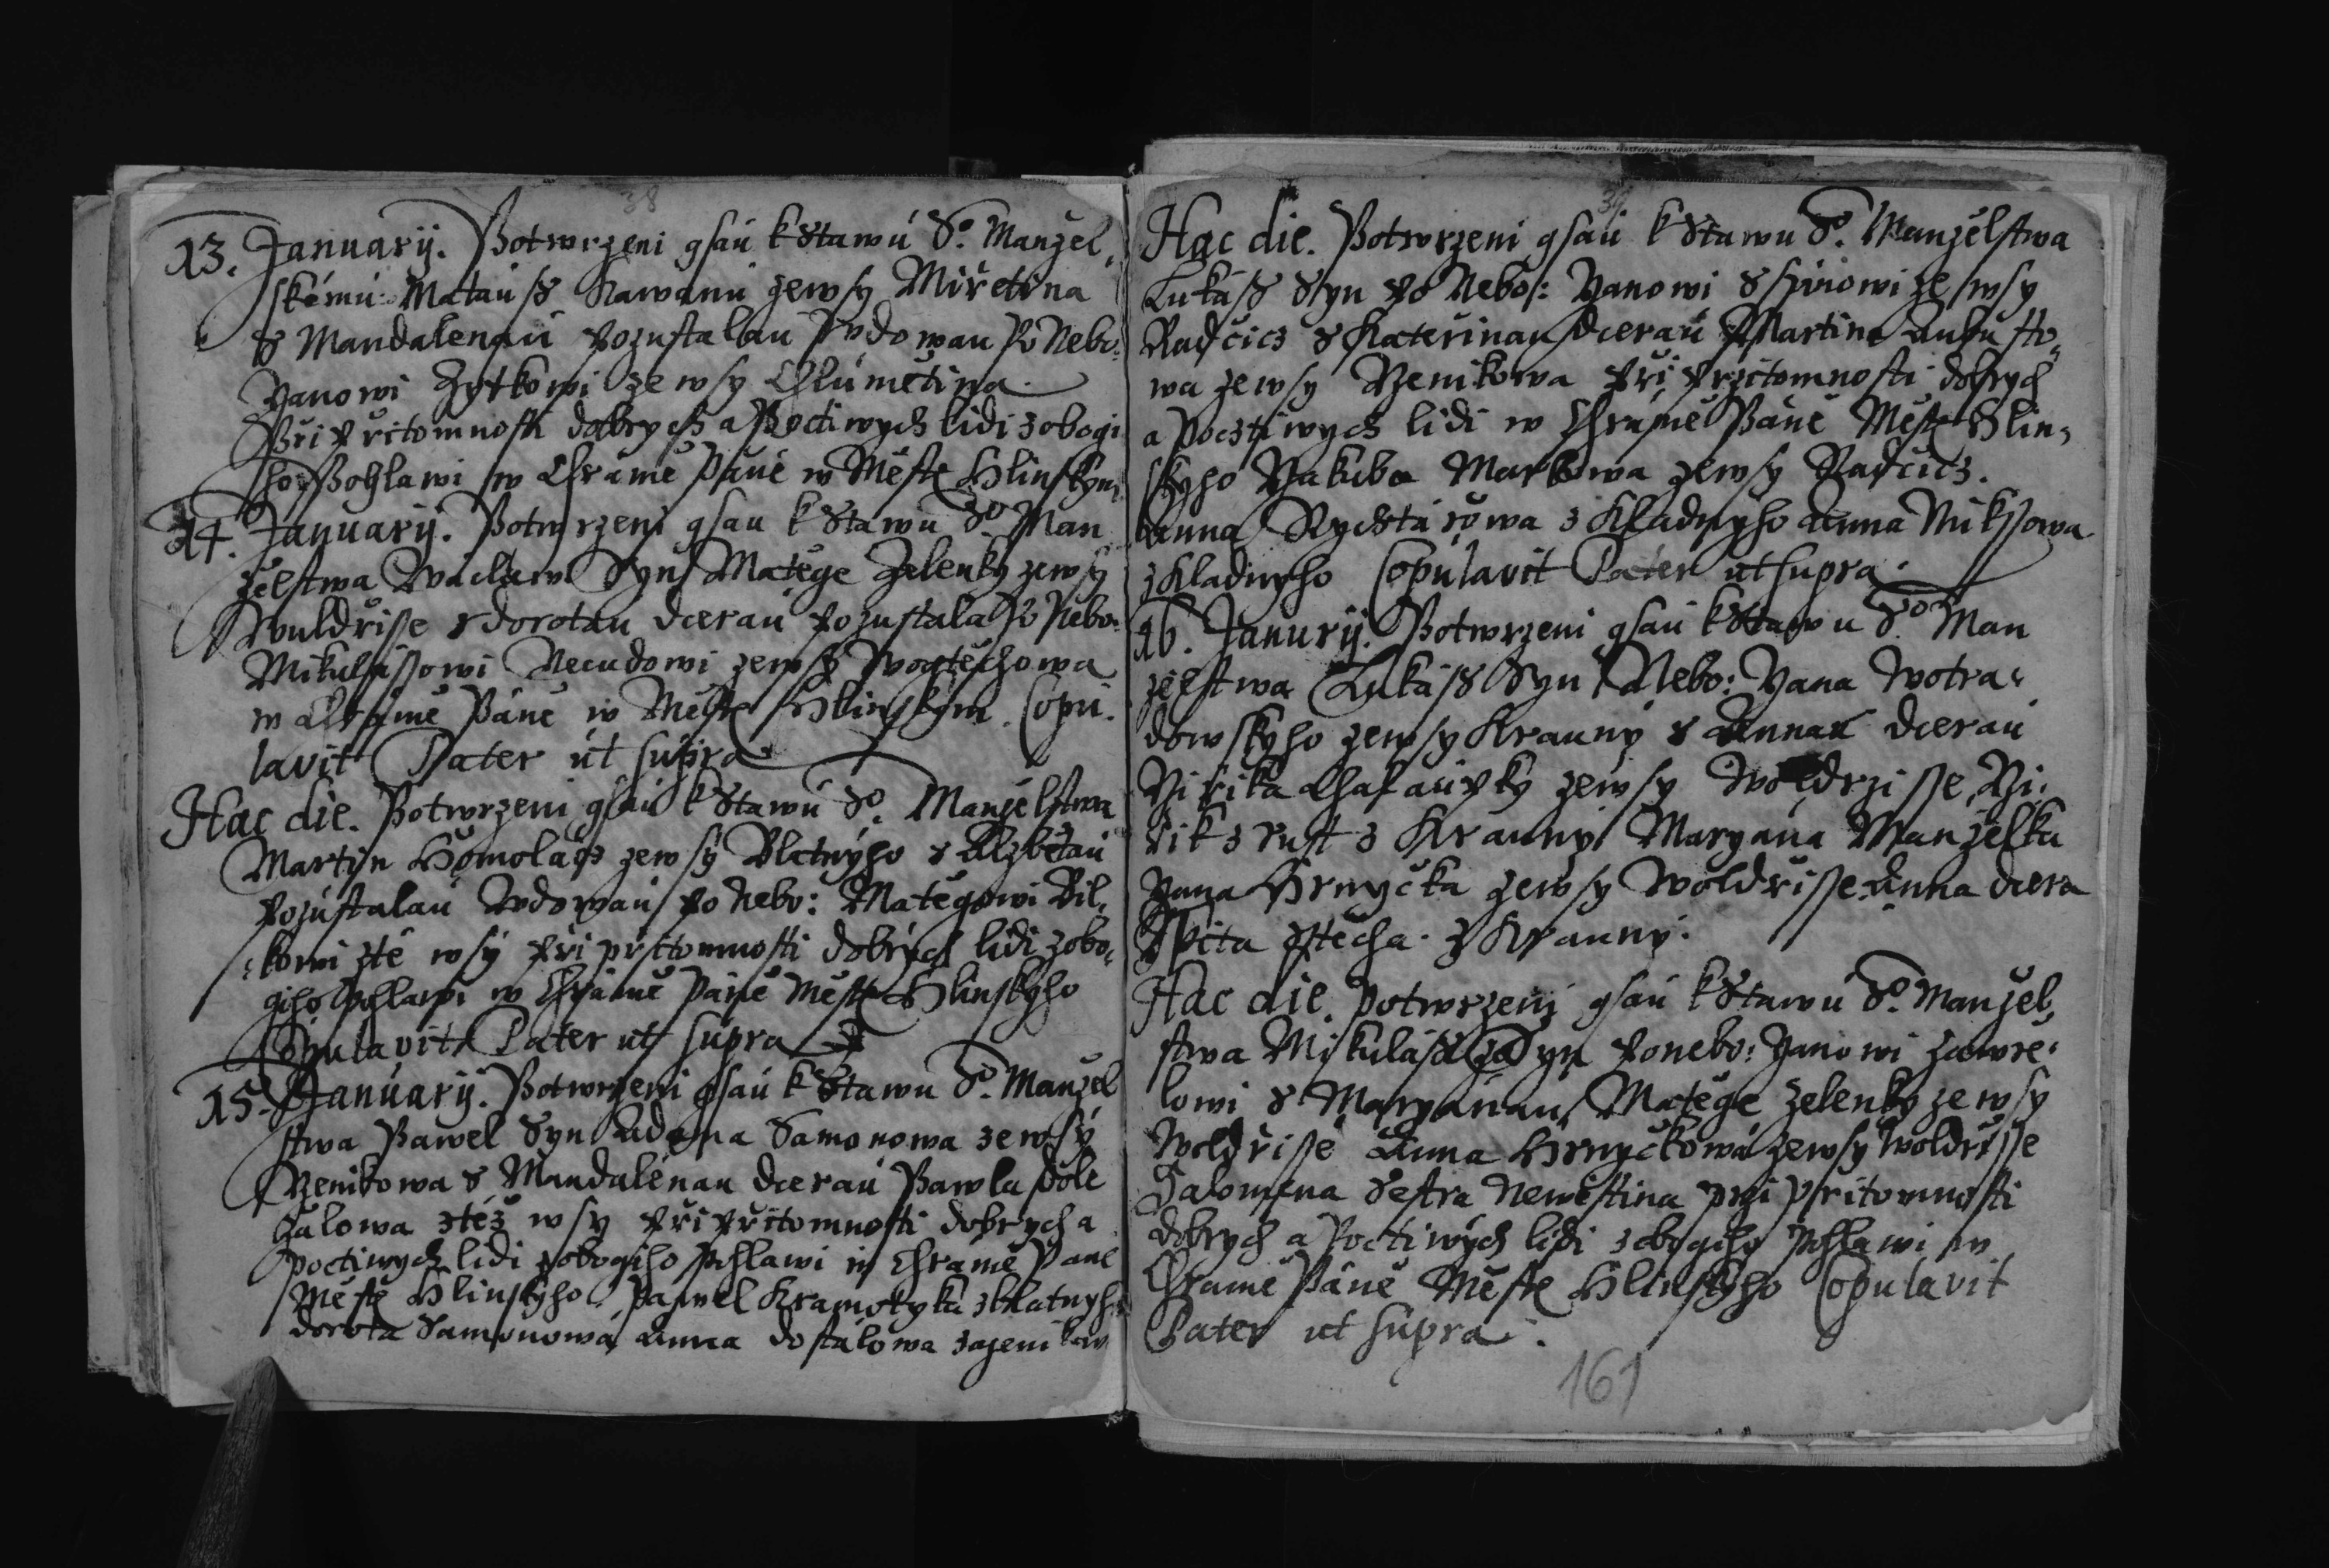 38
13. January. Potwrzeni gsau k Stawu S°. Manzel,
skému: Matauss Kawanu zewsy Miřetina
s Mandalenau pozustalau Wdowau Po Nebo:
Yanowi Zytkowi ze wsy Chlumětina.
Při přitomnosti dobrych a Poctiwych lidi z obogi
ho Pohlawi w Chrámě Páně w Městě Hlinskym
14. January. Potwrzeni gsau k Stawu S° Man
zelstwa Wáclaw Syn Matěge Zelenky zewsy
Wuldřisse s dorotau dcerau pozustala Po Nebo:
Mikulássowi Necudowi zewsy Wogtěchowa
w Chrámě Páně w Městě Hlinskym. Copu.
lavit Pater ut supra
Hac die. Potwrzeni gsau k Stawu S°. Manželstwa
Martin Homolacz zewsy Blatnýho s Alzbětau
pozustalau Wdowau po nebo: Matěgowi Bil,
kowi zté wsy při přitomnosti dobrych lidi z obo,
giho Pohlawi w Chrámě Páně Městě Hlinskyho
Copulavit Pater ut supra
15. January. Potwrzeni gsau k Stawu S°. Manzel
stwa Pawel Syn Adama Samonowa zewsy
Yenikowa s Mandalénau dcerau Pawla Dole
žalowa ztéz wsy při přitomnosti dobrych a
poctiwych lidi z obogiho Pohlawi w Chrámě Páně
Městě Hlinskyho. Pawel Kramotyka z blatnyho
dorota Samonowá Anna dostálowa zagenikow
39
Hac die. Potwrzeni gsau k Stawu S°. Manzelstwa
Lukáss Syn po Nebos: Yanowi ze wsy
Radčicz s Kateřinau dcerau Martina
wa zewsy Yenikowa při przitomnosti dobrych
a pocztiwych lidi w Chrámě Páně Městě Hlin,
skyho Yakuba Markowa zewsy Radčicz.
Anna Rychtářowa z Kladnyho Anna Mikssowa
z Kladnyho Copulavit Pater ut supra.
16. Janury. Potwrzeni gsau k Stawu S° Man
zelstwa Lukáss Syn Nebo: Yana Wotra,
dowskyho zewsy Krauny s Annau dcerau
Yiřika Chalaupky zewsy Woldrzisse, Yi,
řik z rust z Krauny Maryana Manzelka
Yana Hrnycka zewsy Woldřisse Anna dcera
Wita ztěcha. z Krauny.
Hac die. Potwrzeni gsau k Stawu S°. Manzel,
stwa Mikuláss Syn po nebo: Yanowi Zawře,
lowi s Maryánau Matěge Zelenky zewsy
Woldřisse Anna Hrnyčkowá zewsy Woldřisse
Salomena Sestra Newěstina przi Přitomnosti
dobrych a Poctiwých lidi z obogiho Pohlawi w
Chrámě Páně Městě Hlinskyho Copulavit
Pater ut supra.
161